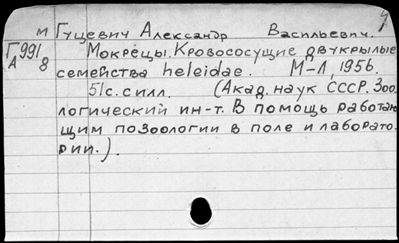 м Гуцевич Александр Васильевич.
Г991 Мокрецы. Кровососущие двукрылые
А 8 семейства heleidae. М-Л, 1956.
51с. с илл. (Акад. наук СССР. Зоо
логический ин-т. В помощь работаю
щим по зоологии в поле и лаборато.
рии.).